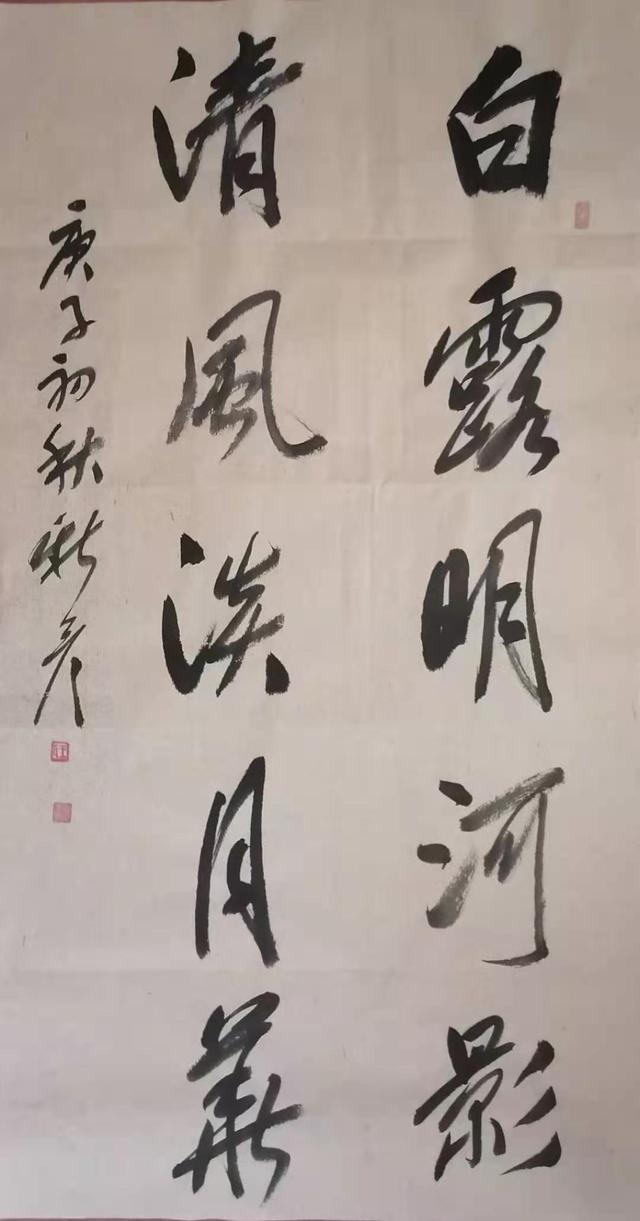 白露明河影
清風淡月華
庚子初秋新彦